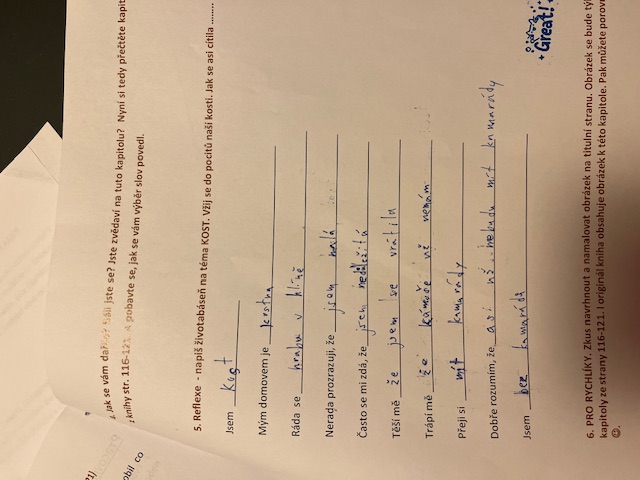 Jak se vám dařilo? Jste zvědaví na tuto kapitolu? Nyní si tedy přečtěte kapit
z knihy str. 116-121. a pobavte se, jak se vám výběr slov povedl.
5. Reflexe - napiš životabáseň na téma KOST. Vžij se do pocitů naší kosti. Jak se asi cítila ........
Jsem kost
Mým domovem je
Ráda se hrabu v hlíně
Nerada prozrazuji, že jsem malá
Často se mi zdá, že jsem nedůležitá
Těší mě že jsem se vrátila
Trápí mě že kámoše už nemám
Přeji si mít kamarády
Dobře rozumím, že asi už nebudu mít kamarády
Jsem bez kamaráda
Great!
6. PRO RYCHLÍKY. Zkus navrhnout a namalovat obrázek na titulní stranu. Obrázek se bude tý
kapitoly ze strany 116-121. I originál kniha obsahuje obrázek k této kapitole. Pak můžete porov
☺.
obil co